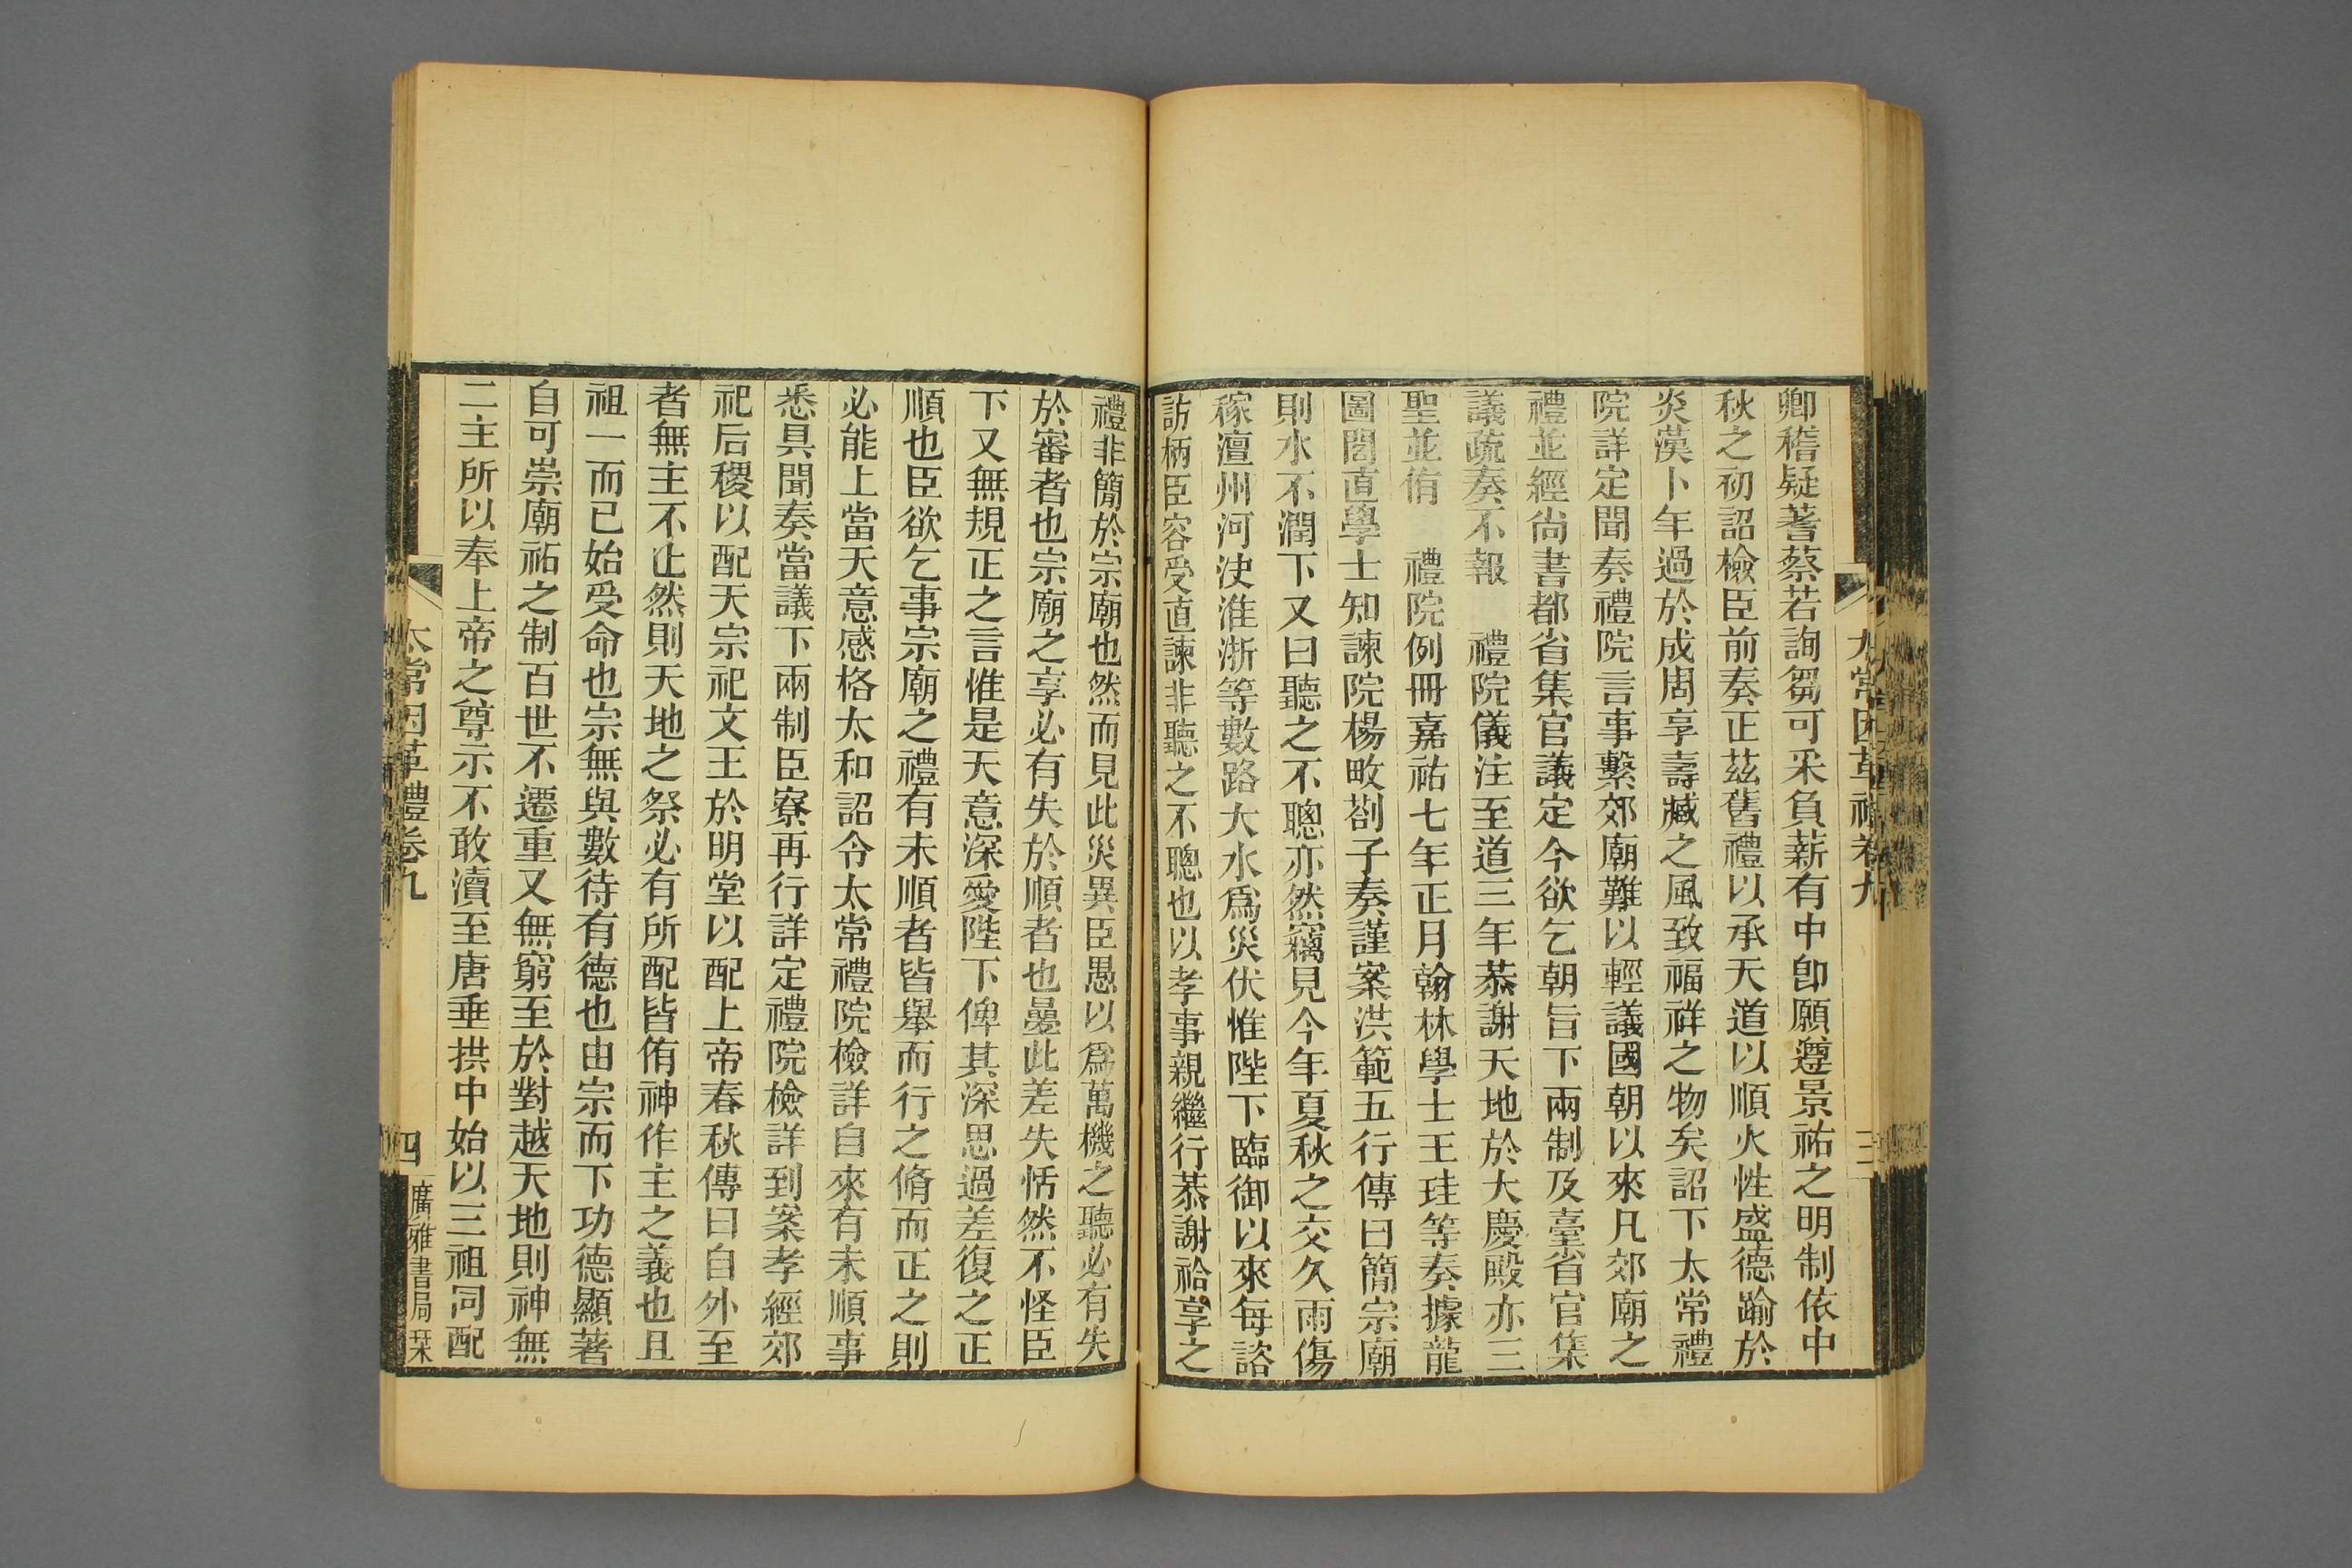 太常因革禮卷九
三
卿稽疑蓍蔡若詢芻可采負薪有中卽願遵景祐之明制依中
秋之初詔檢臣前奏正茲舊禮以承天道以順火性盛德踰於
炎漢卜年過於成周享壽臧之風致福祥之物矣詔下太常禮
院詳定聞奏禮院言事繫郊廟難以輕議國朝以來凡郊廟之
禮並經尙書都省集官議定今欲乞朝旨下兩制及臺省官集
議疏奏不報　禮院儀注至道三年恭謝天地於大慶殿亦三
聖並侑　禮院例冊嘉祐七年正月翰林學士王珪等奏據龍
圖閣直學士知諫院楊畋劄子奏謹案洪範五行傳曰簡宗廟
則水不潤下又曰聽之不聰亦然竊見今年夏秋之交久雨傷
稼澶州河決淮浙等數路大水爲災伏惟陛下臨御以來每諮
訪柄臣容受直諫非聽之不聰也以孝事親繼行恭謝祫享之
禮非簡於宗廟也然而見此災異臣愚以爲萬機之聽必有失
於審者也宗廟之享必有失於順者也曩此差失恬然不怪臣
下又無規正之言惟是天意深愛陛下俾其深思過差復之正
順也臣欲乞事宗廟之禮有未順者皆舉而行之脩而正之則
必能上當天意感格太和詔令太常禮院檢詳自來有未順事
悉具聞奏當議下兩制臣寮再行詳定禮院檢詳到案孝經郊
祀后稷以配天宗祀文王於明堂以配上帝春秋傳曰自外至
者無主不止然則天地之祭必有所配皆侑神作主之義也且
祖一而已始受命也宗無與數待有德也由宗而下功德顯著
自可崇廟祏之制百世不遷重又無窮至於對越天地則神無
二主所以奉上帝之尊示不敢瀆至唐垂拱中始以三祖同配
太常因革禮卷九
四
廣雅書局栞